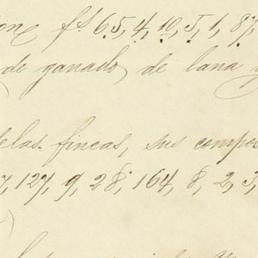 fs. 6, 5, 4, 10, 5, 1, 87
de ganado, de lana y
delas fincas, sus compo
127, 9, 28, 164, 8, 2, 3,